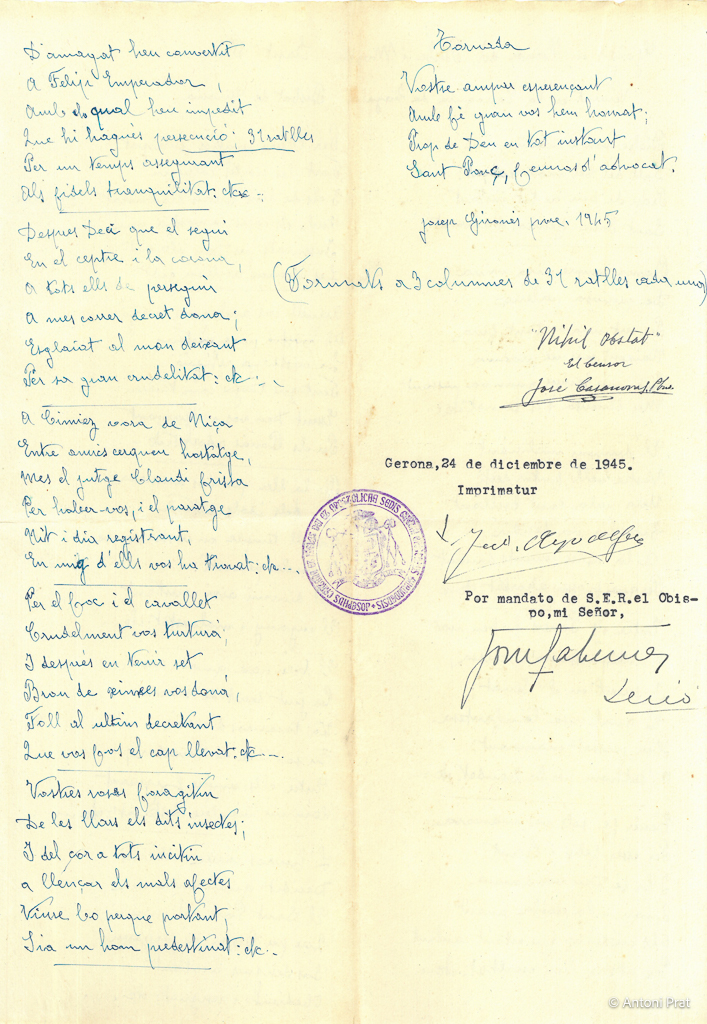 D'amagat heu convertit
A Felip Emperador,
Amb lo qual heu impedit
Que hi hagués persecució; 31 ratlles
Per un temps assegurant
Als fidels tranquilitat: etc...
Despres Deci que el seguí
En el ceptre i la corona,
A tots ells de perseguir
A mes correr decret dona;
Esglaiat al mon deixant
Per sa gran crudelitat: etc...
A Cimiez vora de Niça
Entre amics cerqueu hostatge,
Mes el jutge Claudi frissa
Per haber-vos, i el paratge
Nit i dia registrant,
En mig d'ells vos ha trovat: etc...
Per el foc i el cavallet
Crudelment vos torturà;
I després en tenir set
Brou de xinxes vos donà,
Foll al ultim decretant
Que vos fos el cap llevat: etc...
Vostres roses foragitin
De les llars els dits insectes;
I del cor a tots incitin
a llençar els mals afectes
Viure bo perque portant,
Sia un hom predestinat: etc...
Tornada
Vostre ampar esperençant
Amb fè gran vos hem honrat;
Prop de Deu en tot instant
Sant Ponç, feu-nos d'advocat.
Josep Gironès pvre. 1945
(Formats a 3 columnes de 31 ratlles cada una)
"Nihil Obstat"
El Censor
José Casanovas, Pbro.
Gerona,24 de diciembre de 1945.
Imprimatur
Por mandato de S.E.R.el Obis-
po,mi Señor,
Srio
© Antoni Prat